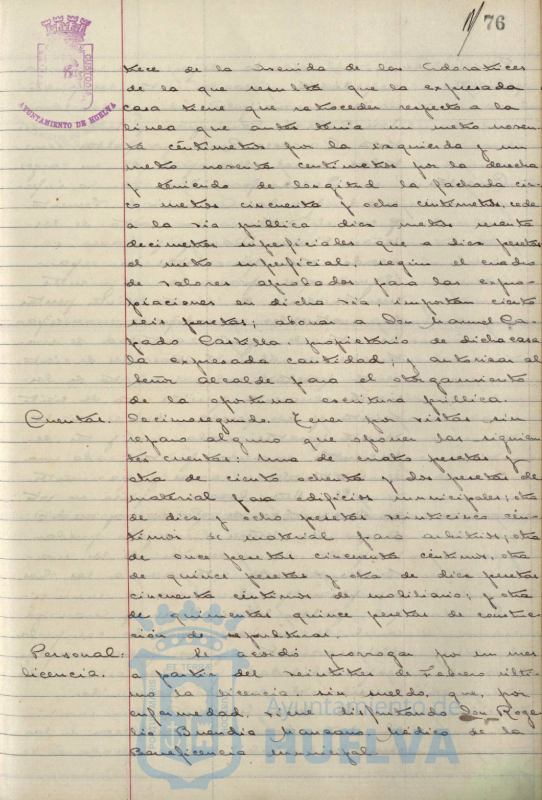 76
AYUNTAMIENTO DE HUELVA
trece de la Avenida de los Adoratrices
de la que resulta que la expresada
casa tiene que retroceder respecto a la
linea que antes tenia un metro noven-
ta centimetros por la izquierda y un
metro noventa centimetros por la derecha
y teniendo de longitud la fachada cin-
co metros cincuenta y ocho centimetros, cede
a la via pública diez metros sesenta
decimetros superficiales que a diez pesetas
el metro superficial, según el cuadro
de valores aprobados para las expro-
piaciones en dicha via, importan ciento
seis pesetas; abonar a Don Manuel
Castilla, propietario de dicha casa
la expresada cantidad; y autorizar al
Señor Alcalde para el otorgamiento
de la oportuna escritura pública.
Cuentas. Decimosegundo. Tener por vistas sin
reparo alguno que oponer las siguien-
tes cuentas: Una de cuatro pesetas y
otra de ciento ochenta y dos pesetas de
material para edificios municipales; otra
de diez y ocho pesetas veinticinco cén-
timos de material para arbitrios; otra
de once pesetas cincuenta céntimos, otra
de quince pesetas y otra de diez pesetas
cincuenta céntimos de mobiliario; y otra
de quinientas quince pesetas de construc-
ción de sepulturas.
Personal: Se acordó prorrogar por un mes
licencia. a partir del veintitres de Febrero últi-
mo la licencia sin sueldo, que, por
enfermedad, viene disfrutando Don Roge-
lio Buendia Manzano Médico de la
Beneficencia municipal.
Ayuntamiento de
HUELVA